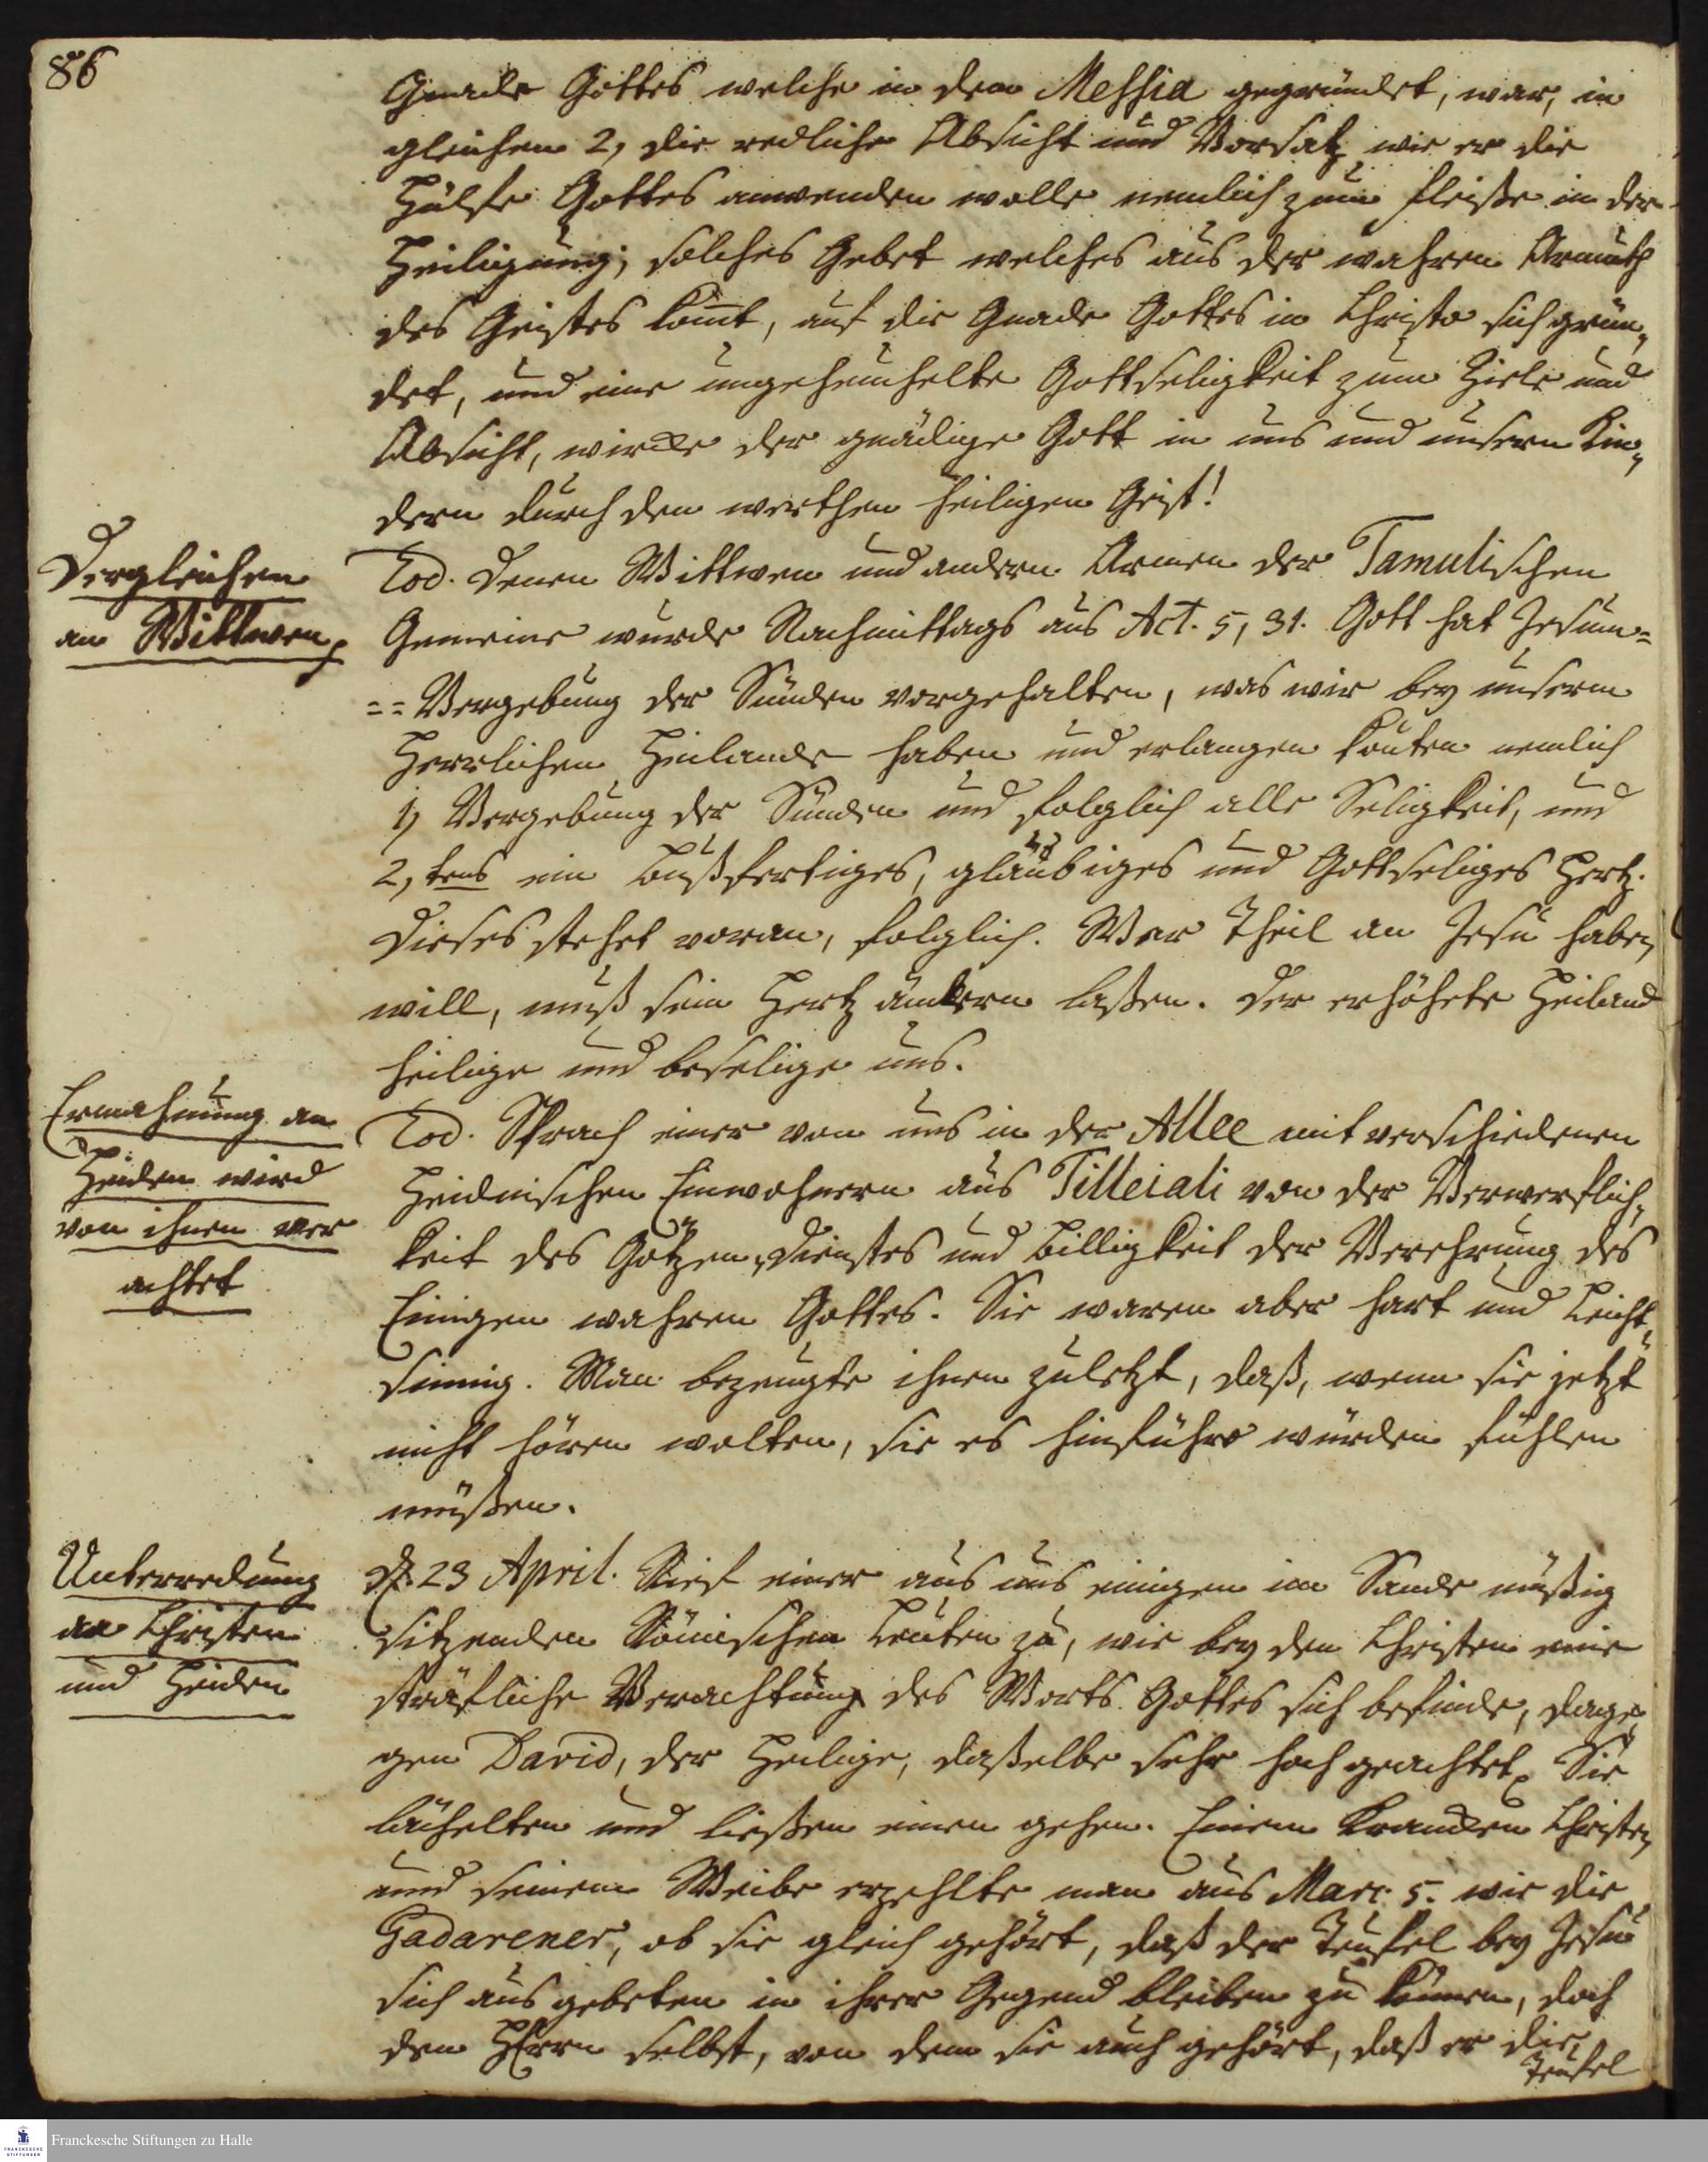 86
Gnade Gottes welche in dem Messia gegründet, war, in
gleichen 2, die redliche Absicht und Vorsatz wie er die
Hülfe Gottes anwenden wolle nemlich zum Fleiße in der
Heiligung; solches Gebet welches aus der wahren Armuth
des Geistes komt, auf die Gnade Gottes in Christo sich grün„
det, und eine ungeheuchelte Gottseligkeit zum Ziele und
Absicht, wircke der gnädige Gott in uns und unsern Kin„
dern durch den werthen heiligen Geist!
Dergleichen
an Wittwen
Eod. Denen Wittwen und andern Armen der Tamulischen
Gemeine wurde Nachmittags aus Act. 5, 31. Gott hat Jesum =
== Vergebung der Sünden vorgehalten, was wir bey unserm
Herrlichen Heilande haben und erlangen könten nemlich
1, Vergebung der Sünden und folglich alle Seligkeit, und
2, tens ein bußfertiges, gläubiges und Gottseliges Hertz.
Dieses stehet voran, folglich. Wer Theil an Jesu haben
will, muß sein Hertz ändern laßen. Der erhöhete Heiland
heilige und beselige uns.
Ermahnung an
Heiden wird
von ihnen ver
achtet
Eod. Sprach einer von uns in der Allee mit verschiedenen
Heidnischen Einwohnern aus Tilleiali von der Verwerflich„
keit des Götzen„dienstes und Billigkeit der Verehrung des
Einigen wahren Gottes. Sie waren aber hart und Leicht„
sinnig. Man bezeugte ihnen zuletzt, daß, wenn sie jetzt
nicht hören wolten, sie es hinführo würden fühlen
müßen.
Unterredung
an Christen
und Heiden
d. 23 April. Rief einer aus uns einigen im Sande müßig
sitzenden Römischen Leuten zu, wie bey den Christen eine
sträfliche Verachtung des Worts Gottes sich befinde, dage„
gen David, der Heilige, daßelbe sehr hoch geachtet. Sie
lächelten und ließen einen gehen. Einem krancken Christen
und seinem Weibe erzehlte man aus Marc. 5. wie die
Gadarener, ob sie gleich gehört, daß der Teufel bey Jesu
sich aus gebeten in ihrer Gegend bleiben zu können, doch
den HErrn selbst, von dem sie auch gehört, daß er die
Teufel
Franckesche Stiftungen zu Halle